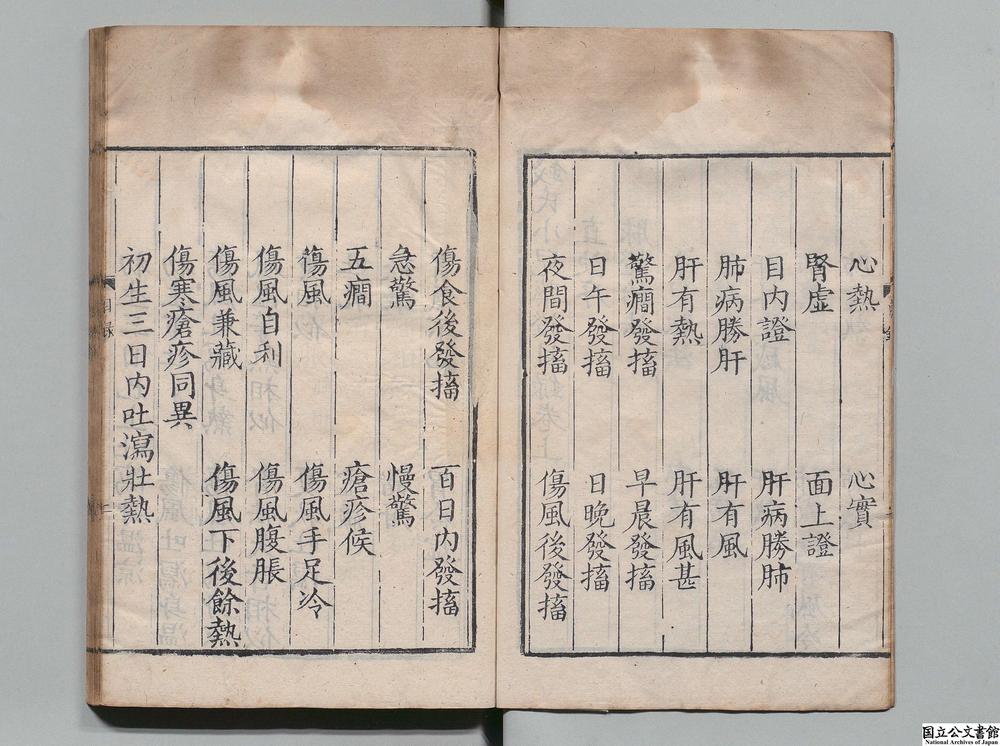 心熱 心實
腎虛 面上證
目内證 肝病勝肺
肺病勝肝 肝有風
肝有熱 肝有風甚
驚癎發搐 早晨發搐
日午發搐 日晚發搐
夜間發搐 傷風後發搐
傷食後發搐 百日内發搐
急驚 慢驚
五癎 瘡疹候
傷風 傷風手足冷
傷風自利 傷風腹脹
傷風兼藏 傷風下後餘熱
傷寒瘡疹同異
初生三日内吐瀉壯熱
目録
二
国立公文書館
National Archives of Japan